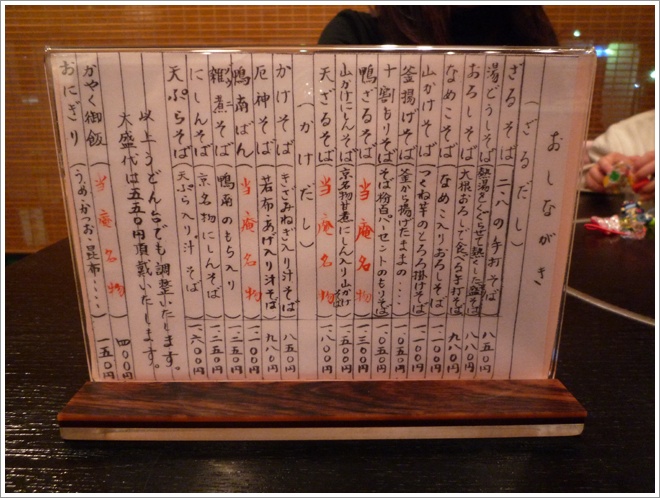 おしながき
(ざるだし)
ざるそば 二、八の手打そば 八五〇円
湯どうしそば 熱湯をくぐらせて熱くした盛そば 八八〇円
おろしそば 大根おろしで食べる手打そば 九八〇円
なめこそば なめこ入りおろしそば 一、一〇〇円
山かけそば つくね芋のとろろ掛けそば 一、一〇〇円
釜揚げそば 釜から揚げたまゝの・・・ 一、〇五〇円
十割もりそば そば粉百パーセントのもりそば 一、一〇〇円
鴨ざるそば 当庵名物 一、三〇〇円
山かけにしんそば 京名物甘煮にしん入り山かけそば 一、五〇〇円
天ざるそば 当庵名物 一、八〇〇円
(かけだし)
かけそば きざみねぎ入り汁そば 八五〇円
厄神そば 若布・あげ入り汁そば 九八〇円
鴨南ばん 当庵名物 一、二〇〇円
雑煮そば 鴨南のもち入り 一、三五〇円
にしんそば 京名物にしんそば 一、二五〇円
天ぷらそば 天ぷら入り汁そば 一、六〇〇円
以上うどん台でも調整いたします。
大盛代は五五〇円頂戴いたします。
かやく御飯 当庵名物 四〇〇円
おにぎり (うめ・かつお・昆布・・・・) 一五〇円